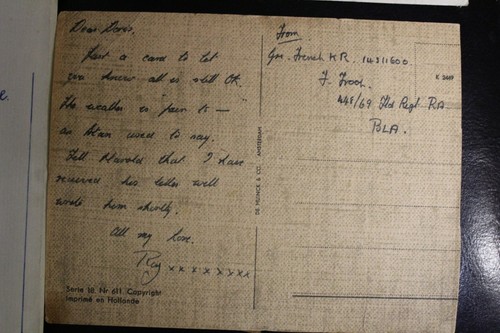 Dear Doris,
Just a card to let
you know all is still OK.
The weather is "fair to —"
as Man used to say.
Tell Harold that I have
received his letter will
write him shortly.
All my love.
Ray x x x x x x x x
Serie 18. Nr 611 Copyright
Imprimé en Hollande
DE MUINCK & CO. AMSTERDAM
From
Gnr. French K.R. 14311600.
F. Troop.
448/69 Fld Regt. RA
BLA.
K 2669